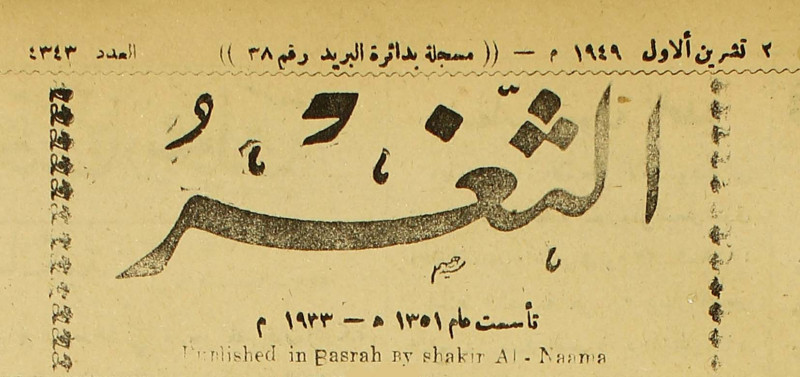 ٢ تشرين ألاول ١٩٤٩ م — (( مسجلة بدائرة البريد رقم ٣٨ )) العدد ٤٣٤٣
الثَّغْرُ
تأسست عام ١٣٥١ ه — ١٩٣٣ م
Puplished in Basrah By shakir Al - Naama